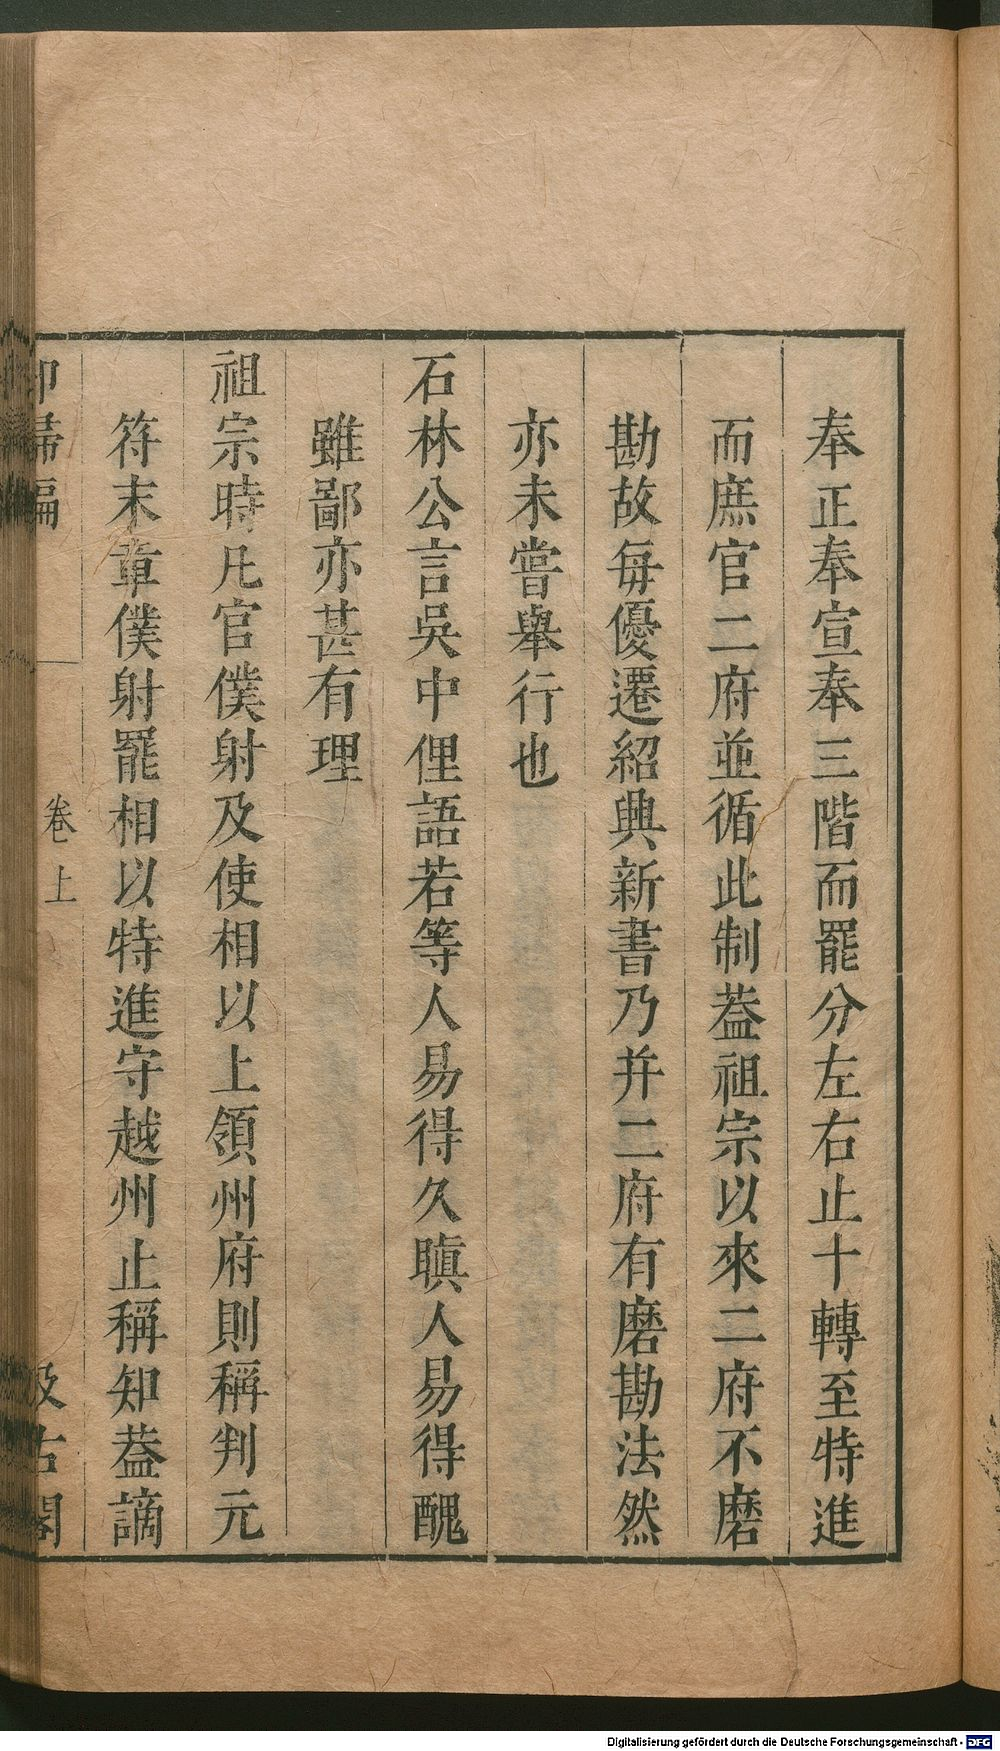 奉正奉宣奉三階而罷分左右止十轉至特進
而庶官二府並循此制葢祖宗以來二府不磨
勘故每優遷紹興新書乃并二府有磨勘法然
亦未嘗舉行也
石林公言吳中俚語若等人易得久瞋人易得醜
雖鄙亦甚有理
祖宗時凡官僕射及使相以上領州府則稱判元
符末章僕射罷相以特進守越州止稱知葢謫
卻掃編
卷上
汲古閣
Digitalisierung gefördert durch die Deutsche Forschungsgemeinschaft - DFG